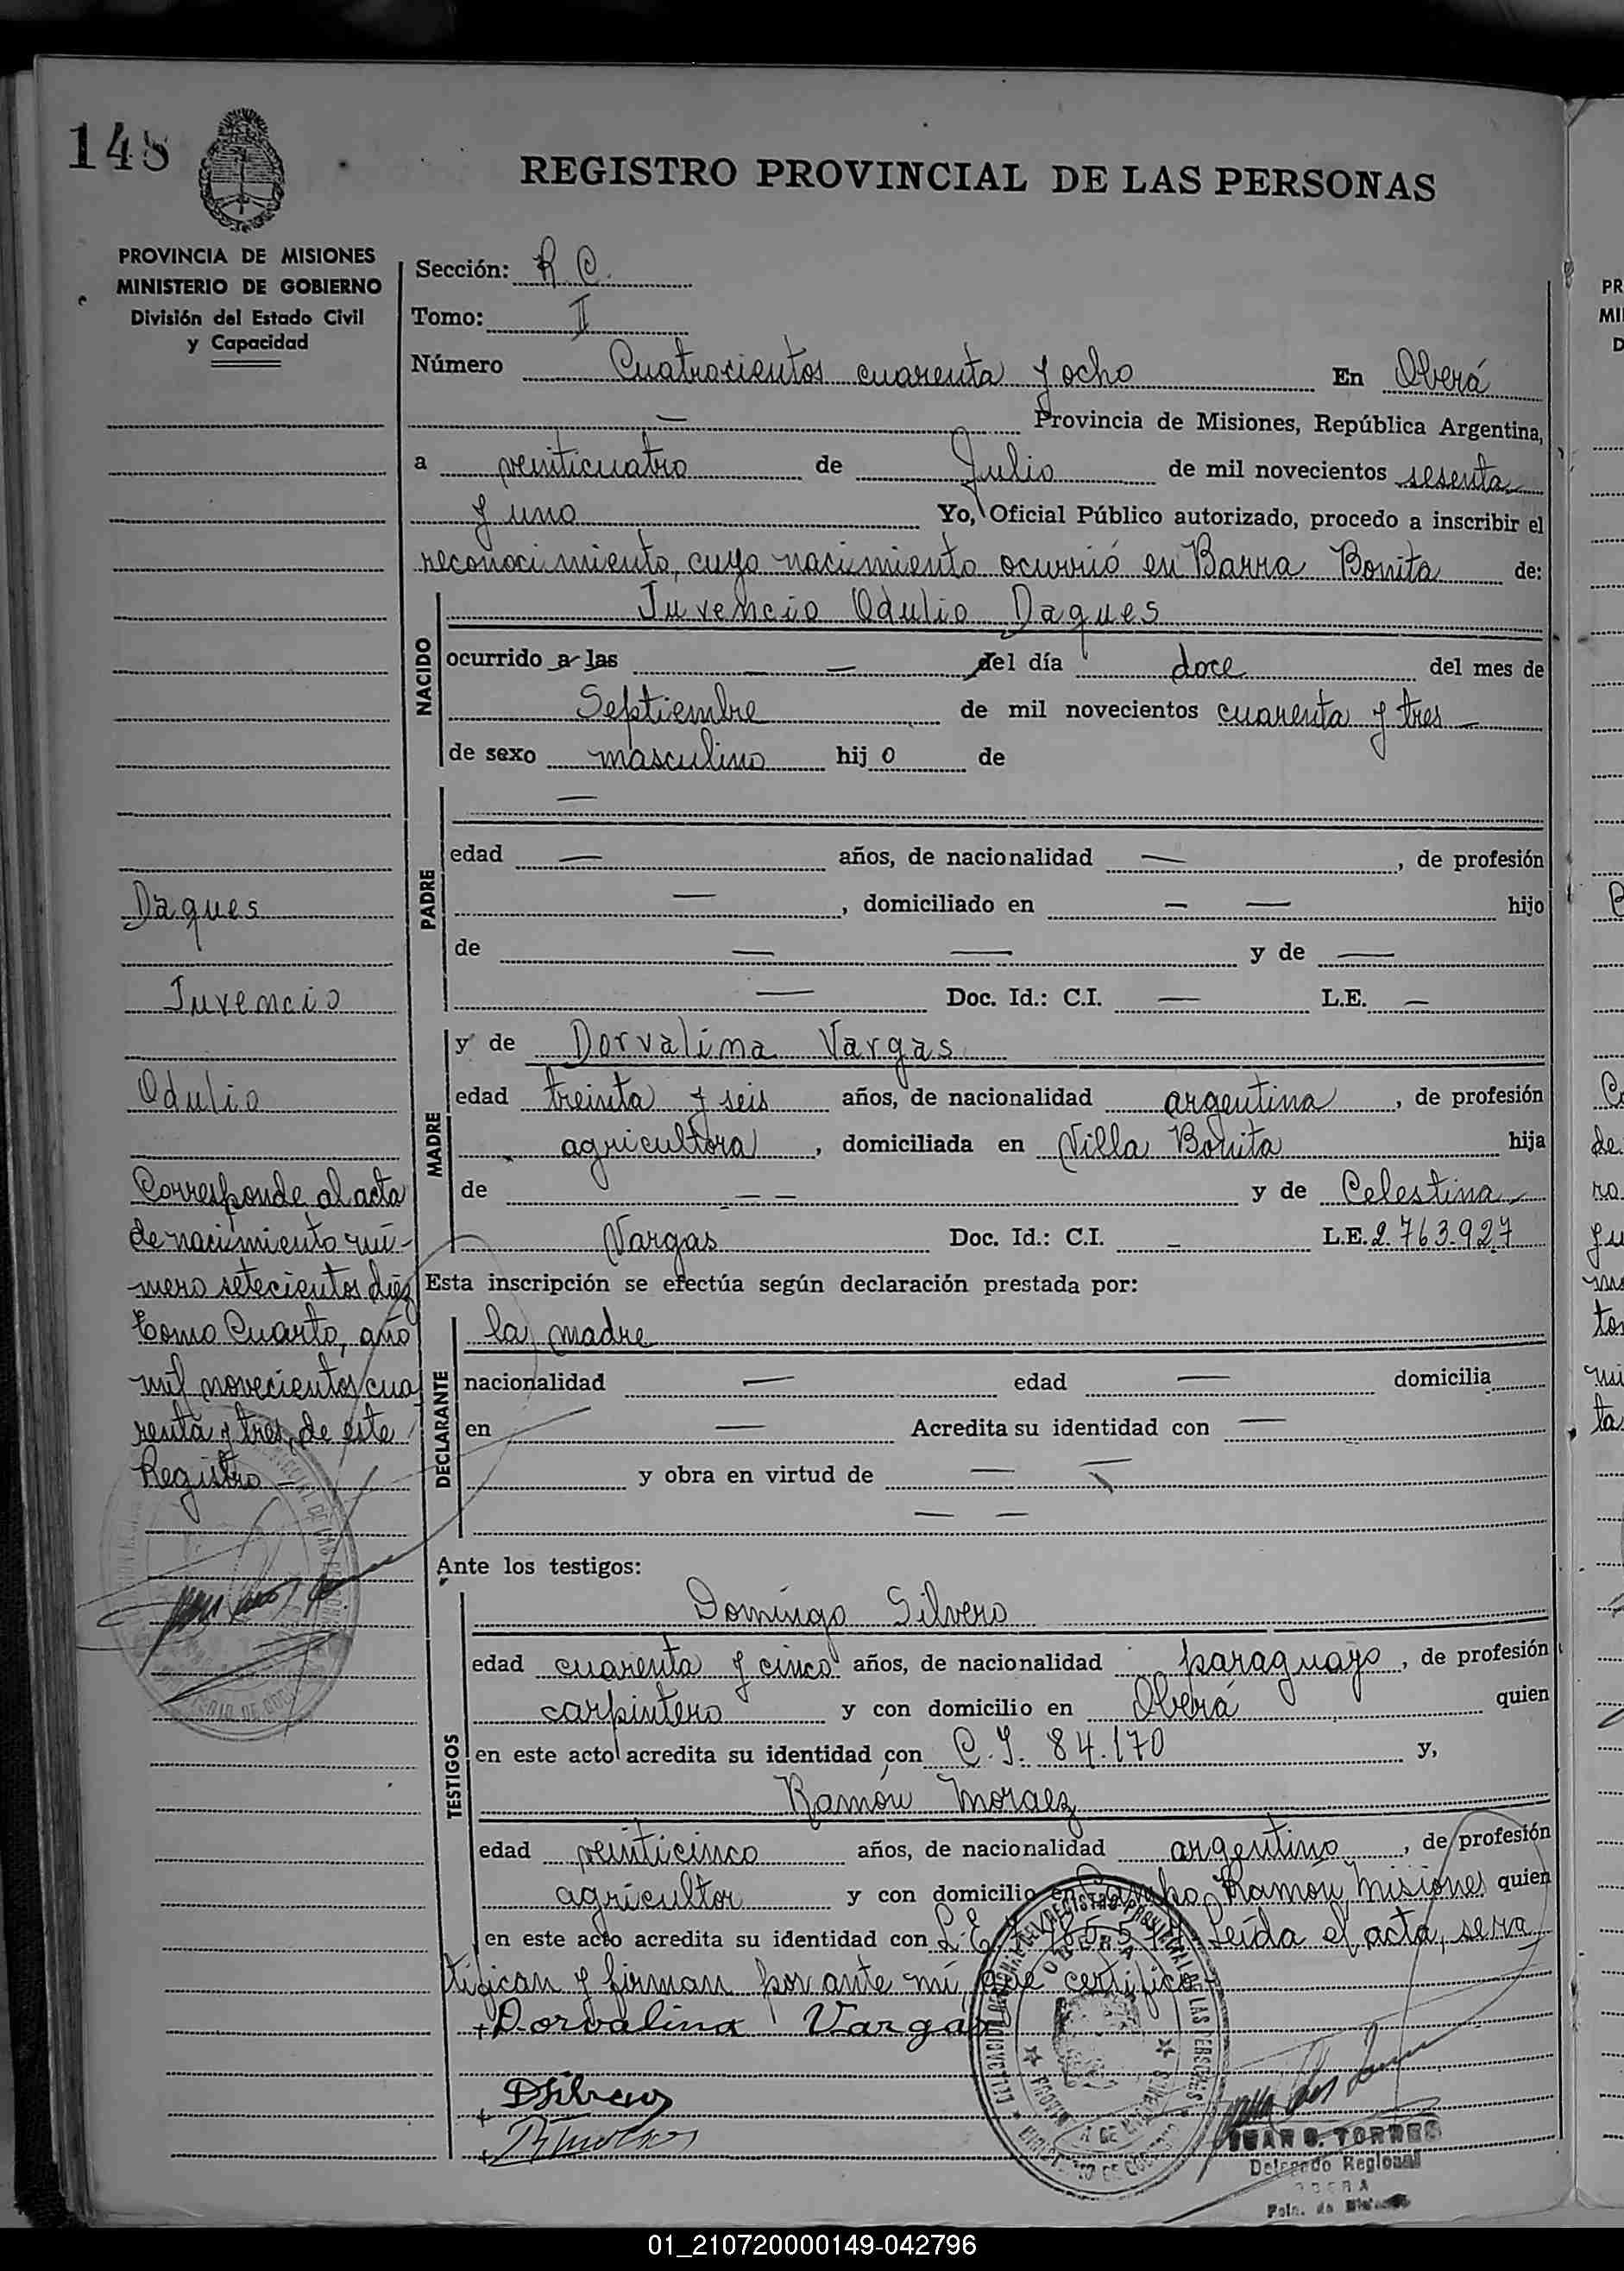 148
REGISTRO PROVINCIAL DE LAS PERSONAS
PROVINCIA DE MISIONES
MINISTERIO DE GOBIERNO
División del Estado Civil
y Capacidad
Sección: R C.
Tomo: II
Número Cuatrocientos cuarenta y ocho En Oberá
— Provincia de Misiones, República Argentina,
a veinticuatro de Julio de mil novecientos sesenta
y uno Yo, Oficial Público autorizado, procedo a inscribir el
reconocimiento, cuyo nacimiento ocurrió en Barra Bonita de:
NACIDO
Juvencio Odulio Daques
ocurrido a las — — del día doce del mes de
Septiembre de mil novecientos cuarenta y tres —
de sexo masculino hij o de
PADRE
—
edad — años, de nacionalidad —, de profesión
—, domiciliado en — — hijo
de — — y de —
— Doc. Id.: C.I. — L.E. —
MADRE
y de Dorvalina Vargas
edad treinta y seis años, de nacionalidad argentina, de profesión
agricultora, domiciliada en Villa Bonita hija
de — — y de Celestina
Vargas Doc. Id.: C.I. — L.E. 2.763.927
Esta inscripción se efectúa según declaración prestada por:
DECLARANTE
la madre
nacionalidad — edad — domicilia
en — Acredita su identidad con —
y obra en virtud de — —
— —
Ante los testigos:
TESTIGOS
Domingo Silvero
edad cuarenta y cinco años, de nacionalidad paraguayo, de profesión
carpintero y con domicilio en Oberá quien
en este acto acredita su identidad con C.I. 84.170 y,
Ramón Moraez
edad veinticinco años, de nacionalidad argentino, de profesión
agricultor y con domicilio en Ramón, Misiones quien
en este acto acredita su identidad con L.E. Leída el acta, se ra
tifican y firman por ante mí, que certifico
+Dorvalina Vargas
DSilvero
JUAN TORRES
Delegado Regional
OBERA
Daques
Juvencio
Odulio
Corresponde al acta
de nacimiento nú-
mero setecientos diez
tomo Cuarto, año
mil novecientos cua
renta y tres, de este
Registro —
01_210720000149-042796